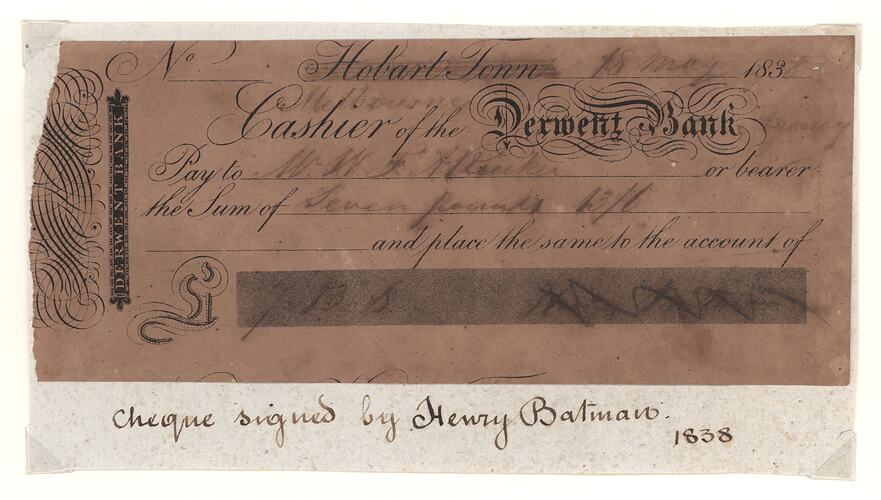 No Hobart Town 18 May 183
Melbourne
Cashier of the Derwent Bank
DERWENT BANK
Pay to Mr W F A Rucker or bearer
the Sum of Seven pounds 13/
and place the same to the account of
£
cheque signed by Henry Batman.
1838